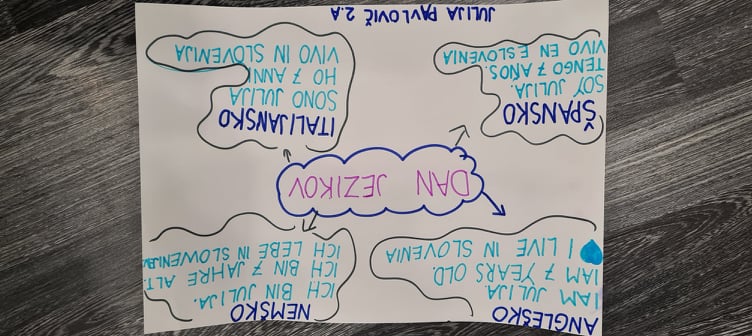 ANGLEŠKO
I AM JULIJA.
I AM 7 YEARS OLD.
I LIVE IN SLOVENIA
NEMŠKO
ICH BIN JULIJA.
ICH BIN 7 JAHRE ALT.
ICH LEBE IN
DAN JEZIKOV
ŠPANSKO
SOY JULIJA.
TENGO 7 AÑOS.
VIVO EN ESLOVENIA
ITALIJANSKO
SONO JULIJA
HO 7 ANNI
VIVO IN SLOVENIJA
JULIJA PAVLOVIČ 2.A